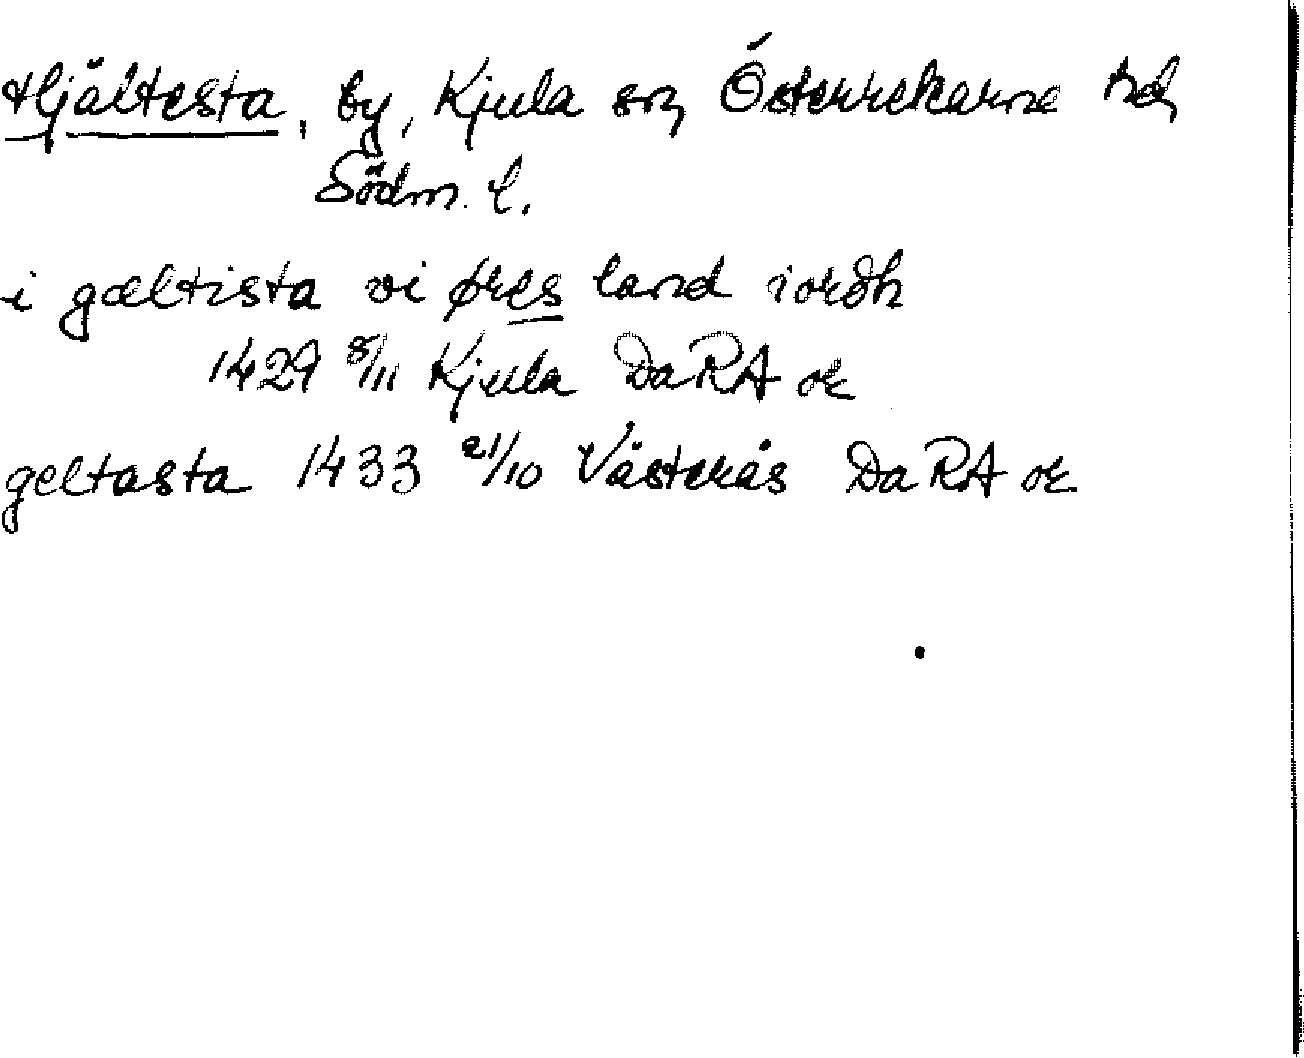 Hjältesta, by, Kjula sn, Österrekarne hd,
Södm. l.
i gæltista vi øres land iordh
1429 8/11 Kjula DaRA or
geltasta 1433 21/10 Västerås DaRA or